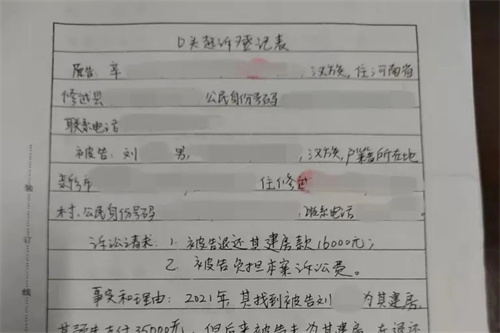 口头起诉登记表
原告:辛 ,汉族,住河南省
修武县 公民身份号码
联系电话
被告:刘 男, ,汉族,户籍所在地
焦作市 住修武
村,公民身份号码 ,联系电话
诉讼请求:1.被告退还其建房款16000元;
2.被告负担本案诉讼费。
事实和理由:2021年,其找到被告刘 为其建房,
其预先支付35000元,但后来被告未为其建房,在退还
装
订
线